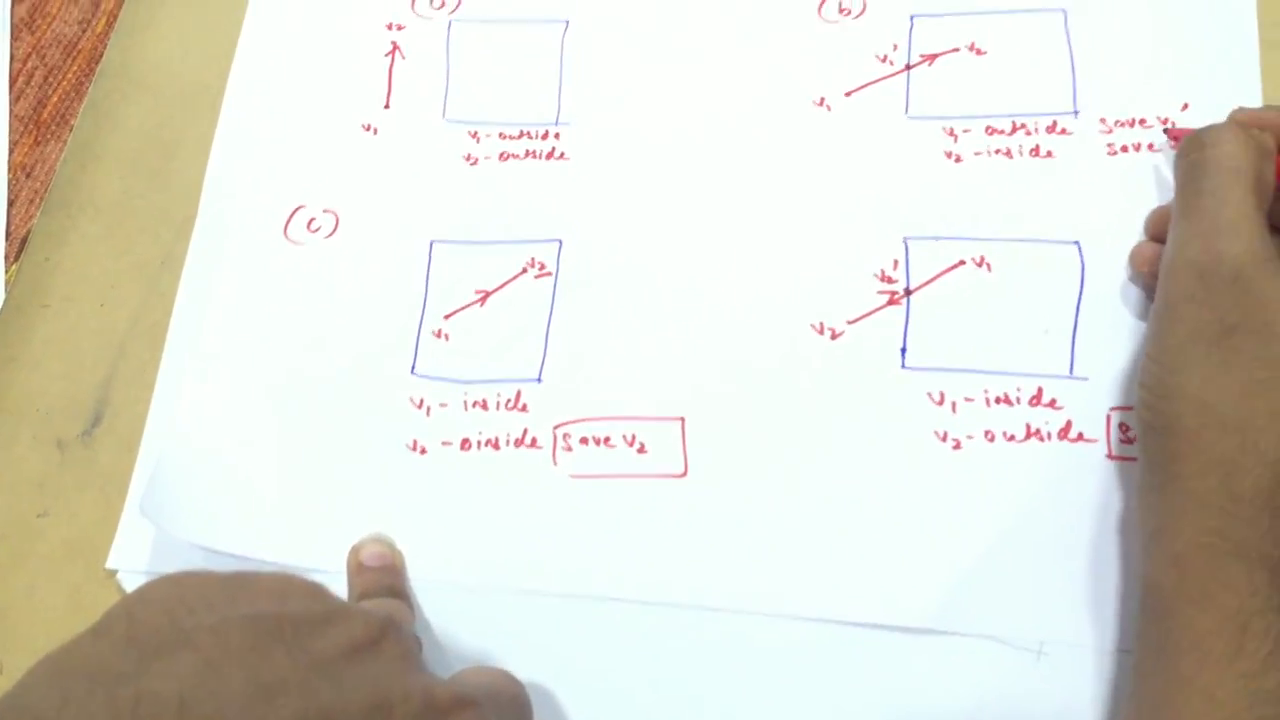 (a)
v2
v1
v1 - outside
v2 - outside
(b)
v1'
v2
v1
v1 - outside
v2 - inside
save v1'
save
(c)
v2
v1
v1 - inside
v2 - oinside
save v2
v2'
v1
v2
v1 - inside
v2 - outside